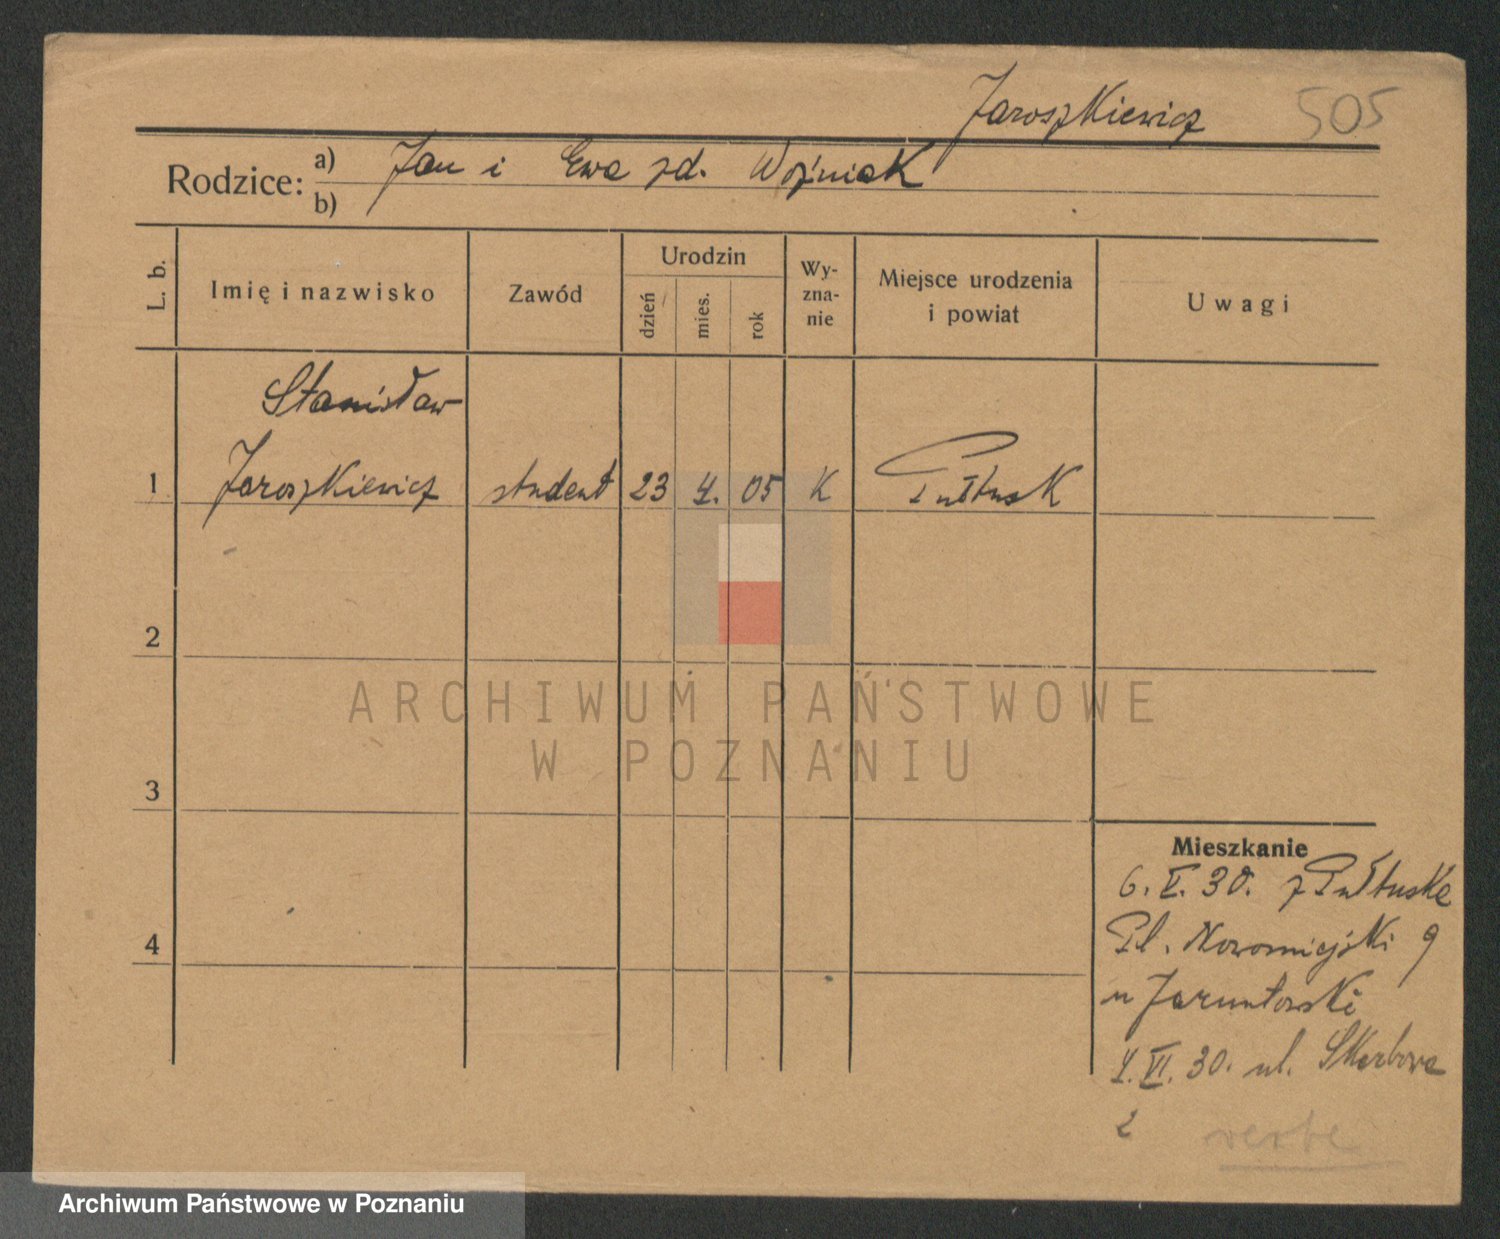 Jaroszkiewicz 505
Rodzice: a) Jan i Ewa zd. Woźniak
b)
L. b. Imię i nazwisko Zawód Urodzin dzień mies. rok Wy-zna-nie Miejsce urodzenia i powiat Uwagi
Stanisław
1 Jaroszkiewicz student 23 4. 05 K Pułtusk
2
ARCHIWUM PAŃSTWOWE
W POZNANIU
3
Mieszkanie
6. V. 30. z Pułtuska
4 Pl. Nowomiejski 9
u Jaruntowski
4. VI. 30. ul. Skarbowa
2 verte
Archiwum Państwowe w Poznaniu